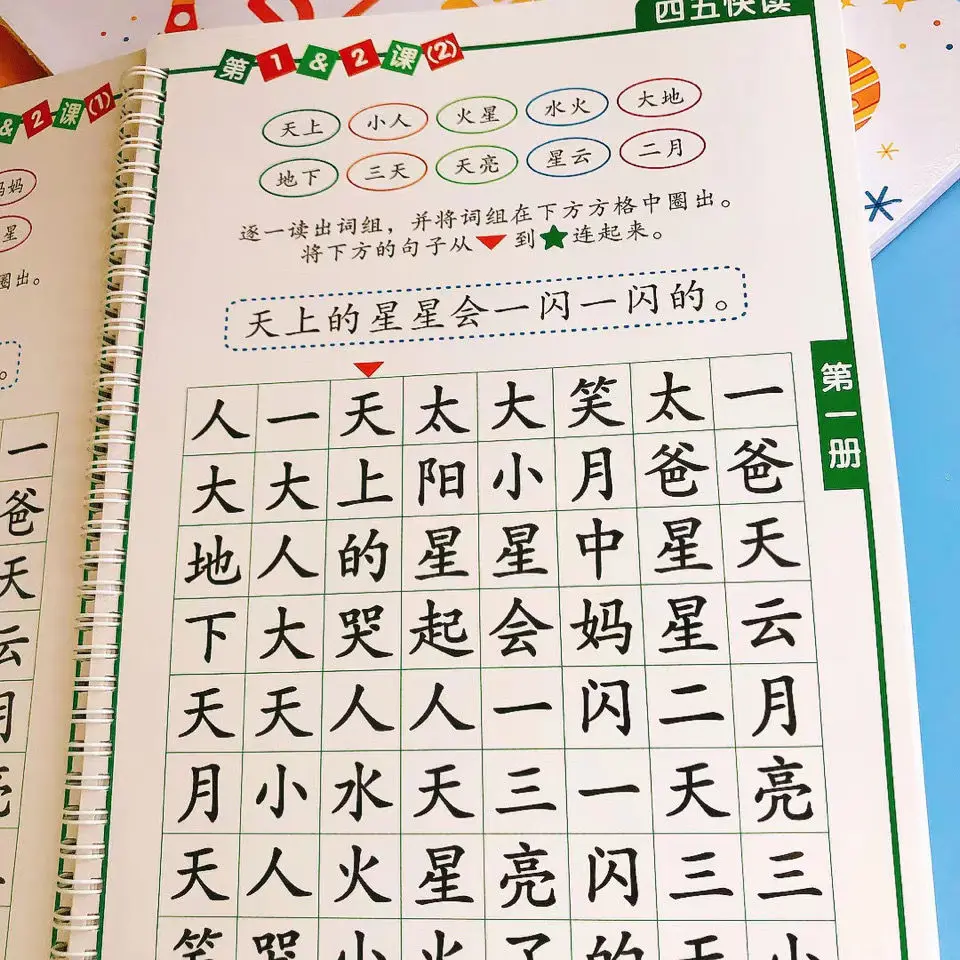 四五快读
第1&2课(2)
天上 小人 火星 水火 大地
地下 三天 天亮 星云 二月
逐一读出词组，并将词组在下方方格中圈出。
将下方的句子从 到 连起来。
天上的星星会一闪一闪的。
人一天太大笑太一
大大上阳小月爸爸
地人的星星中星天
下大哭起会妈星云
天天人人一闪二月
月小水天三一天亮
天人火星亮闪三三
笑哭小火了的天小
第一册
&2课(1)
妈妈
星
圈出。
。
一
爸
天
云
月
亮